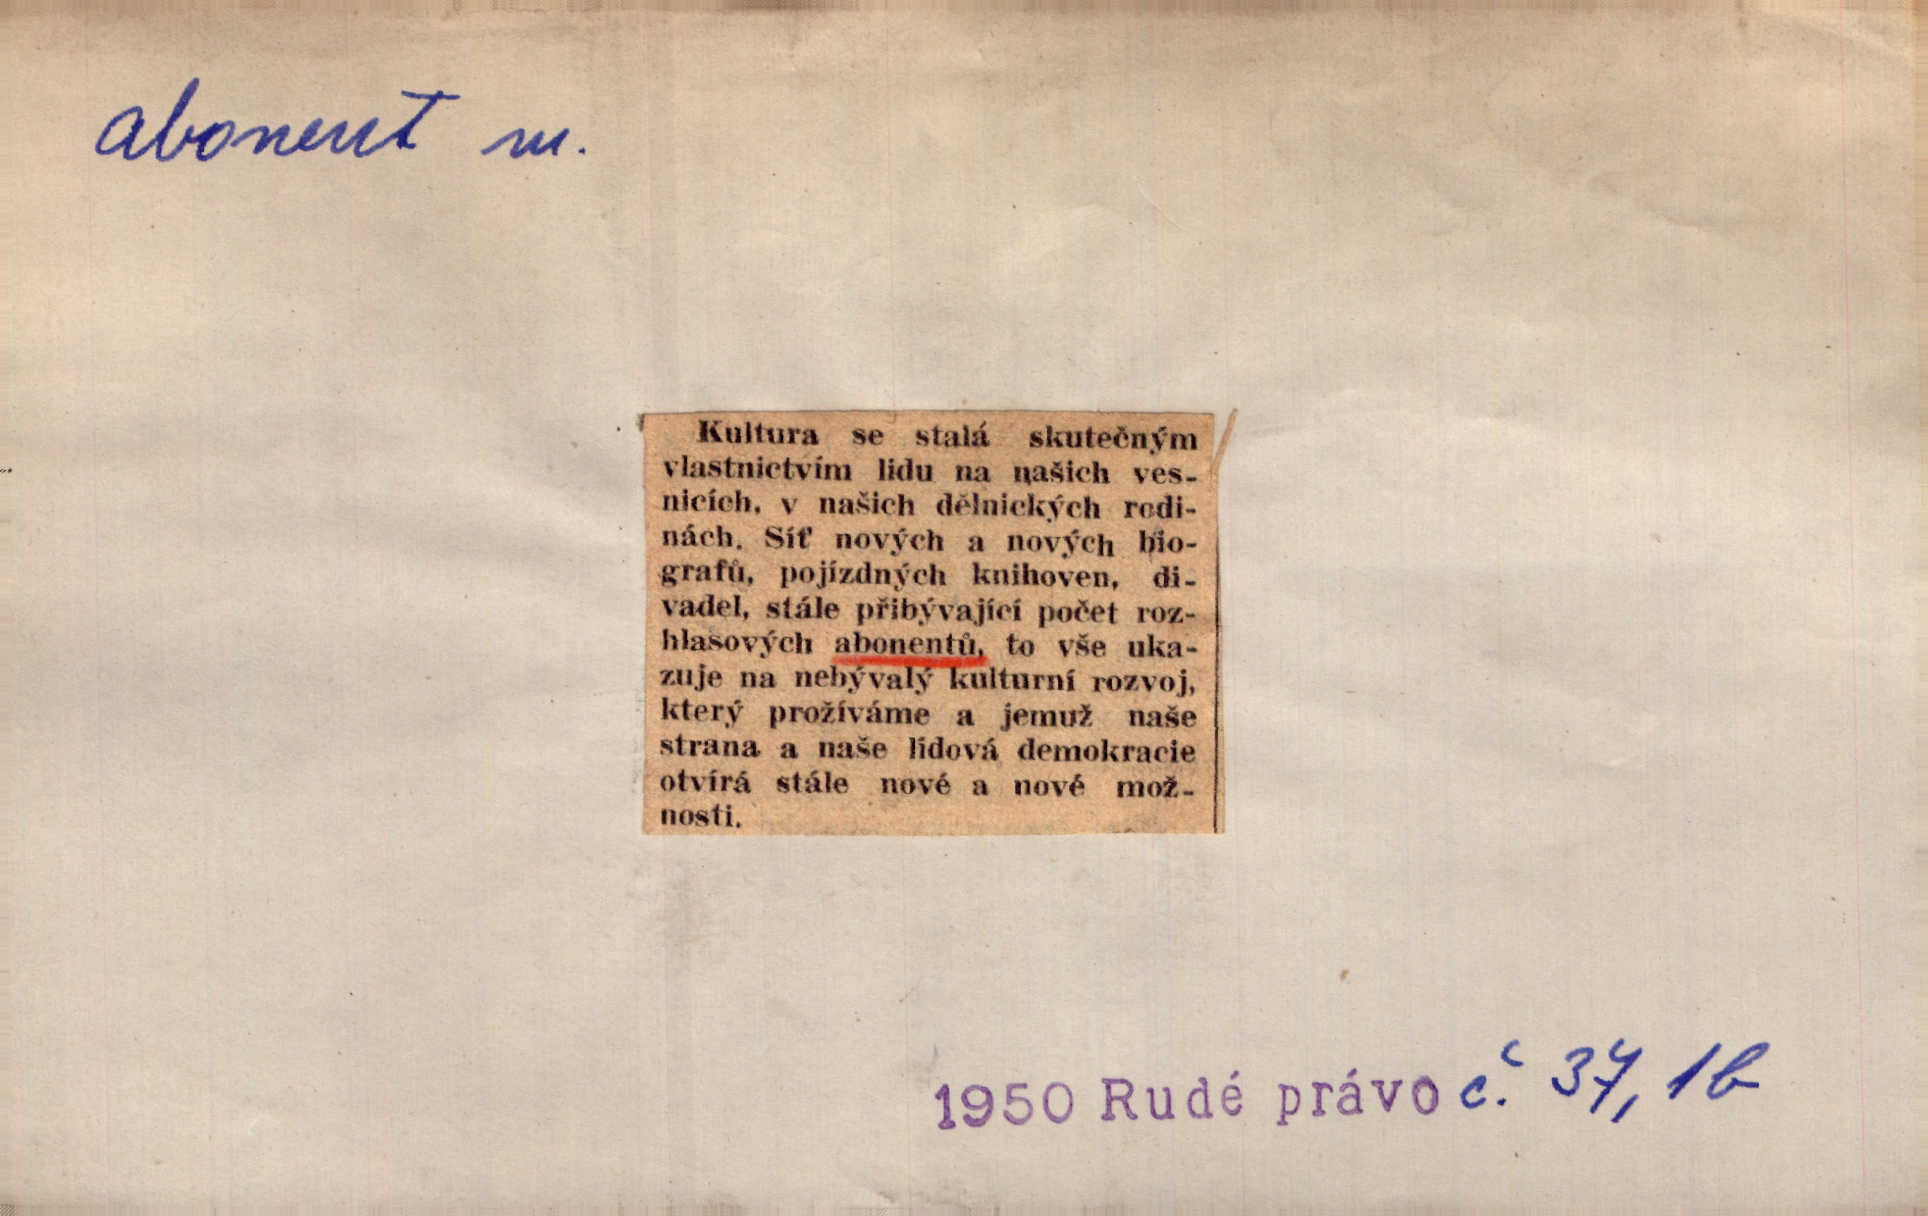 abonent m.
Kultura se stalá skutečným
vlastnictvím lidu na našich ves-
nicích, v našich dělnických rodi-
nách. Síť nových a nových bio-
grafů, pojízdných knihoven, di-
vadel, stále přibývající počet roz-
hlasových abonentů, to vše uka-
zuje na nebývalý kulturní rozvoj,
který prožíváme a jemuž naše
strana a naše lidová demokracie
otvírá stále nové a nové mož-
nosti.
1950 Rudé právo č. 37, 1b